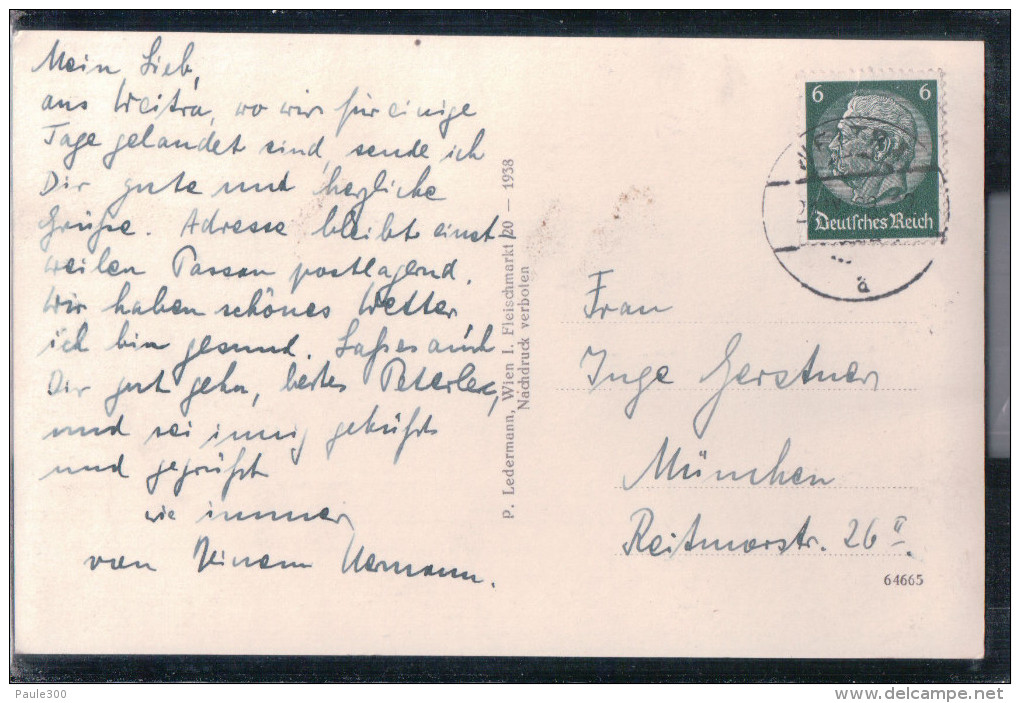 Mein Lieb,
aus Weitra, wo wir für einige
Tage gelandet sind, sende ich
Dir gute und herzliche
Grüße. Adresse bleibt einst-
weilen Passau postlagernd.
Wir haben schönes Wetter
ich bin gesund. Lass es auch
Dir gut gehn, bestes Peterle,
und sei innig geküßt
und gegrüßt
wie immer
von Deinem Hermann.
P. Ledermann, Wien I. Fleischmarkt 20 — 1938
Nachdruck verboten
6 6
Deutsches Reich
a
Frau
Inge Gerstner
München
Reitmorstr. 26 II.
64665
Paule300
http://www.delcampe.net